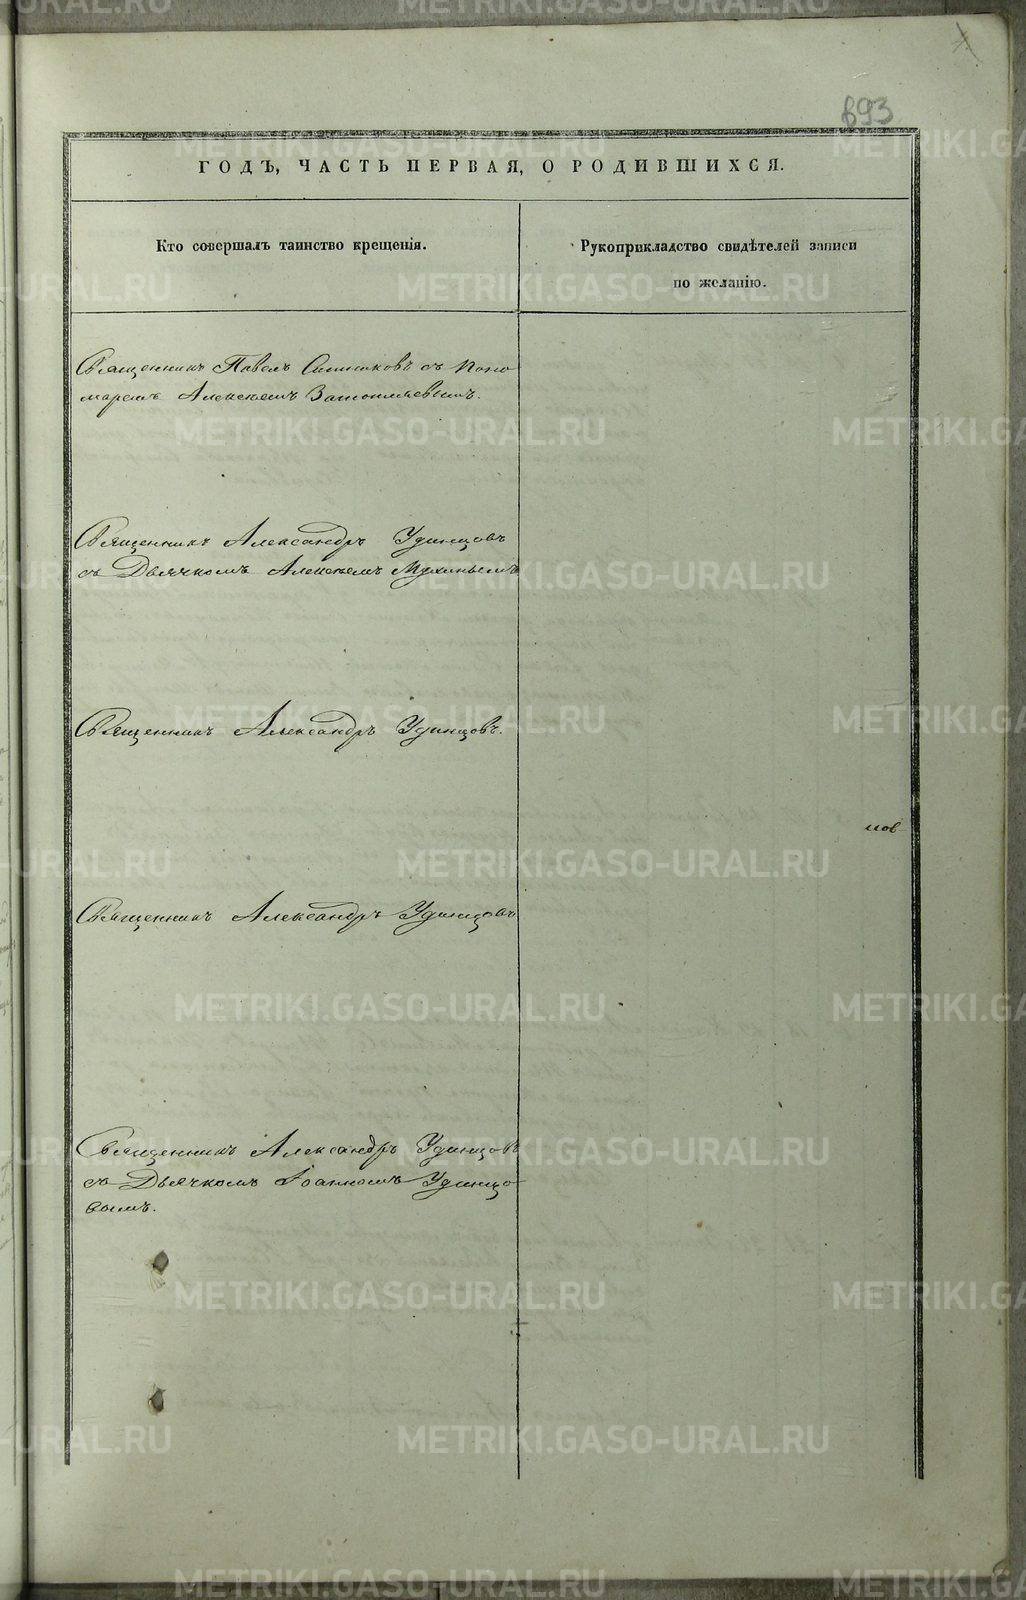 693
ГОДЪ, ЧАСТЬ ПЕРВАЯ, О РОДИВШИХСЯ.
Кто совершалъ таинство крещенія.
Рукоприкладство свидѣтелей записи
по желанію.
Священникъ Павелъ съ Поно
маремъ Алексѣемъ
Священникъ Александръ Удинцовъ
съ Дьячкомъ Алексѣемъ Мухинымъ
Священникъ Александръ Удинцовъ.
нов
Священникъ Александръ Удинцовъ
Священникъ Александръ Удинцовъ
съ Дьячкомъ Іоанномъ Удинцо
вымъ.
METRIKI.GASO-URAL.RU